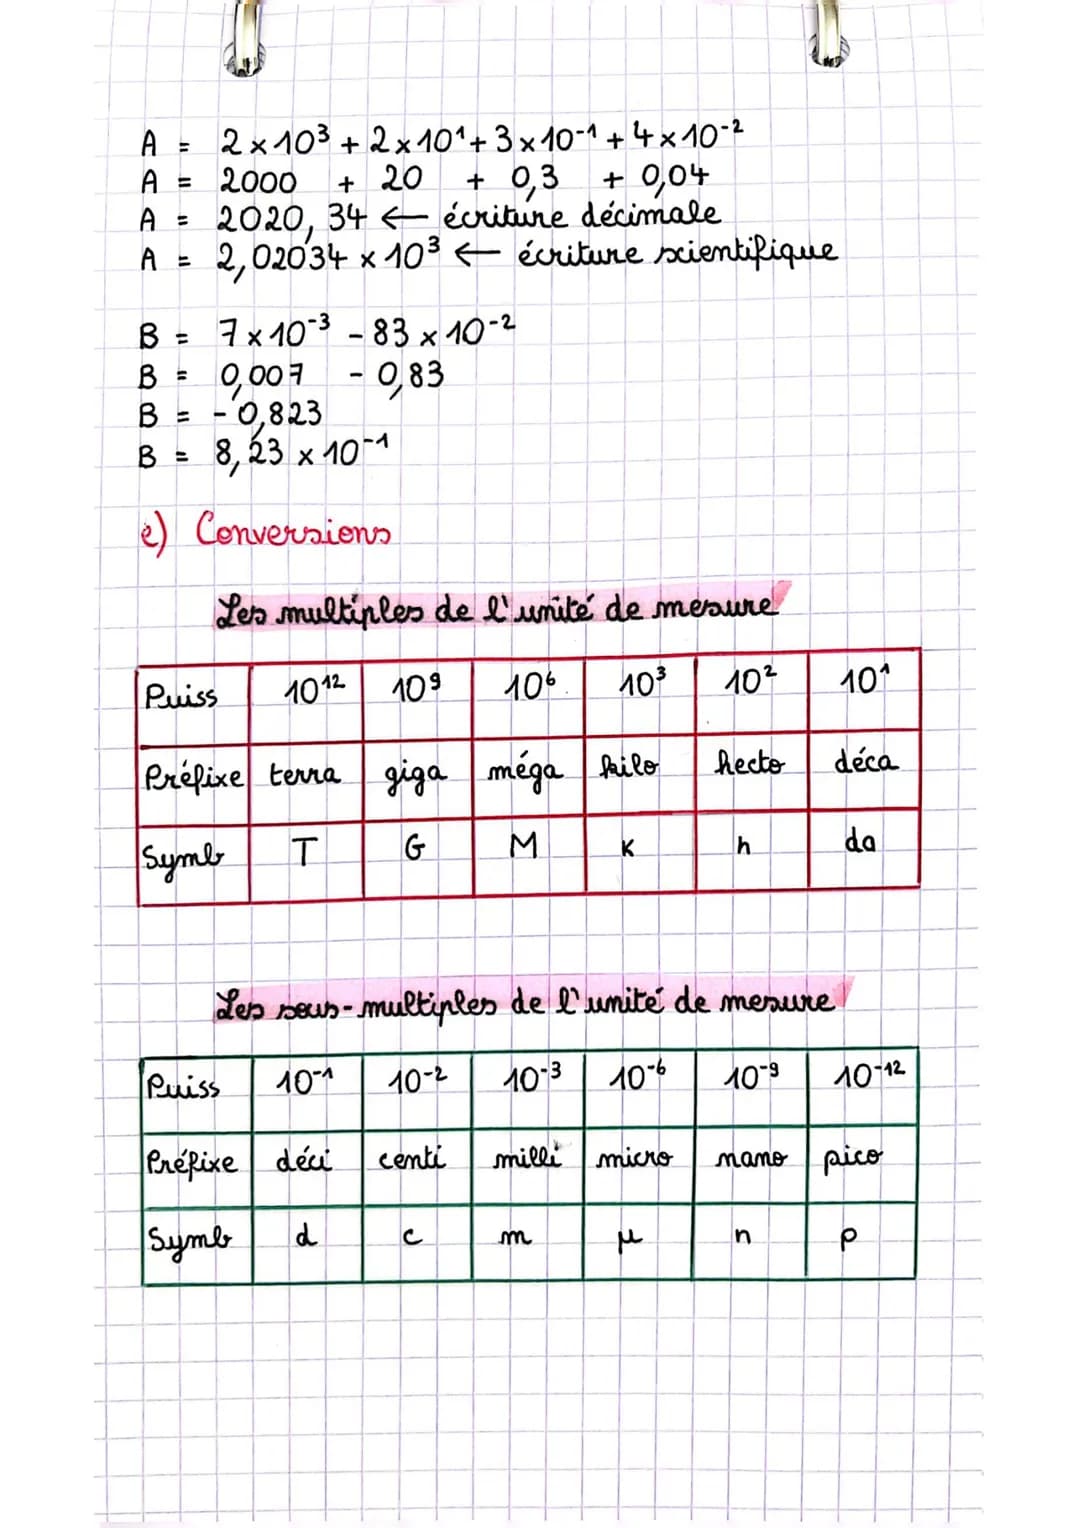 A = 2 × 10³ + 2 × 10¹ + 3 × 10⁻¹ + 4 × 10⁻²
A = 2000 + 20 + 0,3 + 0,04
A = 2020,34 ← écriture décimale
A = 2,02034 × 10³ ← écriture scientifique
B = 7 × 10⁻³ - 83 × 10⁻²
B = 0,007 - 0,83
B = - 0,823
B = 8,23 × 10⁻¹
e) Conversions
Les multiples de l'unité de mesure
Puiss 10¹² 10⁹ 10⁶ 10³ 10² 10¹
Préfixe terra giga méga kilo hecto déca
Symb T G M K h da
Les sous-multiples de l'unité de mesure
Puiss 10⁻¹ 10⁻² 10⁻³ 10⁻⁶ 10⁻⁹ 10⁻¹²
Préfixe déci centi milli micro nano pico
Symb d c m μ n p